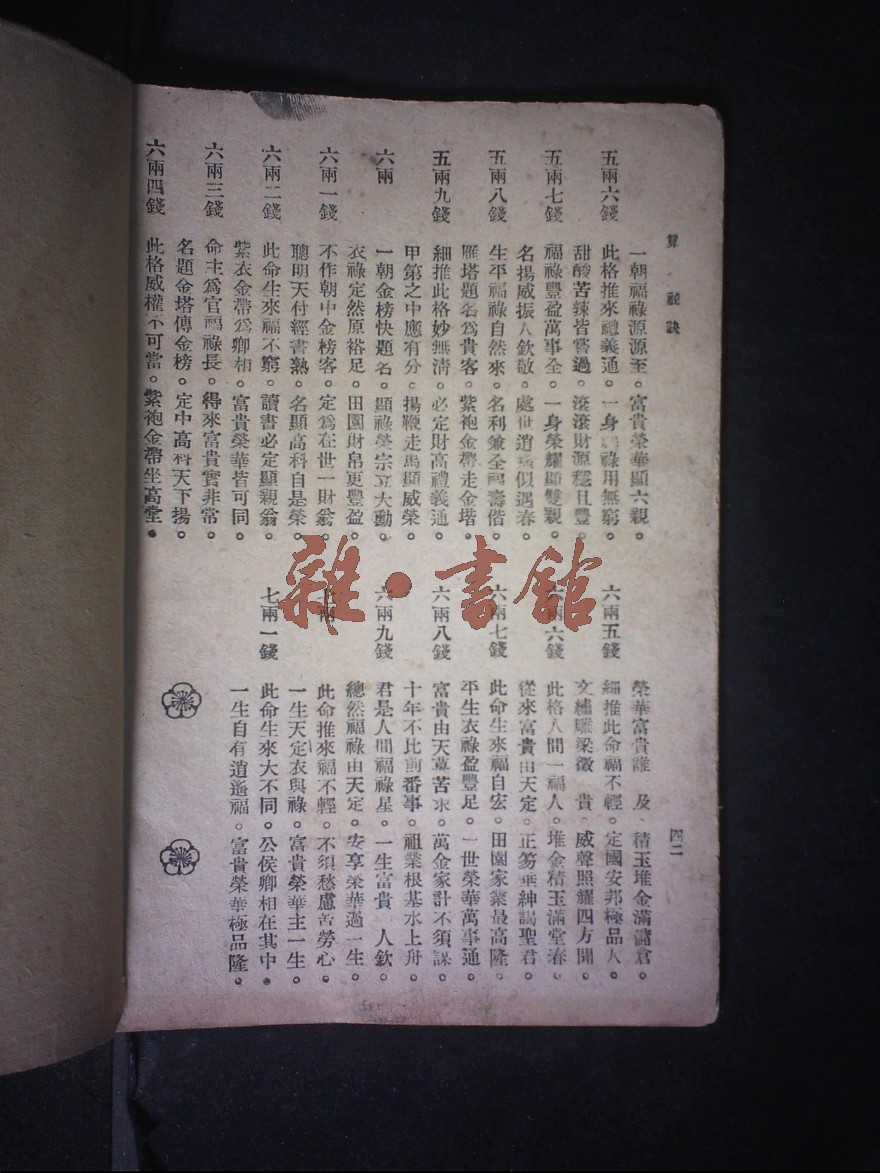 算 秘訣
一朝福祿源源至。富貴榮華顯六親。
五兩六錢
此格推來禮義通。一身 祿用無窮。
甜酸苦辣皆嘗過。滾滾財源穩且豐。
五兩七錢
福祿豐盈萬事全。一身榮耀顯雙親。
名揚威振人欽敬。處世逍 似遇春。
五兩八錢
生平福祿自然來。名利兼全福壽偕。
雁塔題名為貴客。紫袍金帶走金堦。
五兩九錢
細推此格妙無清。必定財高禮義通。
甲第之中應有分。揚鞭走馬顯威榮。
六兩
一朝金榜快題名。顯祿榮宗立大勳。
衣祿定然原裕足。田園財帛更豐盈。
六兩一錢
不作朝中金榜客。定為在世一財翁。
聰明天付經書熟。名顯高科自是榮。
六兩二錢
此命生來福不窮。讀書必定顯親翁。
紫衣金帶為卿相。富貴榮華皆可同。
六兩三錢
命主為官福祿長。得來富貴實非常。
名題金塔傳金榜。定中高科天下揚。
六兩四錢
此格威權不可當。紫袍金帶坐高堂。
榮華富貴誰 及、積玉堆金滿 倉。
六兩五錢
細推此命福不輕。定國安邦極品人。
文繡雕梁徵 貴、威聲照耀四方聞。
兩六錢
此格人間一福人。堆金積玉滿堂春。
從來富貴由天定。正笏垂紳謁聖君。
六兩七錢
此命生來福自宏。田園家業最高隆。
平生衣祿盈豐足。一世榮華萬事通。
六兩八錢
富貴由天莫苦求。萬金家計不須謀。
十年不比前番事。祖業根基水上舟。
六兩九錢
君是人間福祿星。一生富貴 人欽。
總然福祿由天定。安享榮華過一生。
七兩
此命推來福不輕。不須愁慮苦勞心。
一生天定衣與祿。富貴榮華主一生。
七兩一錢
此命生來大不同。公侯卿相在其中。
一生自有逍遙福。富貴榮華極品隆。
四二
雜·書館